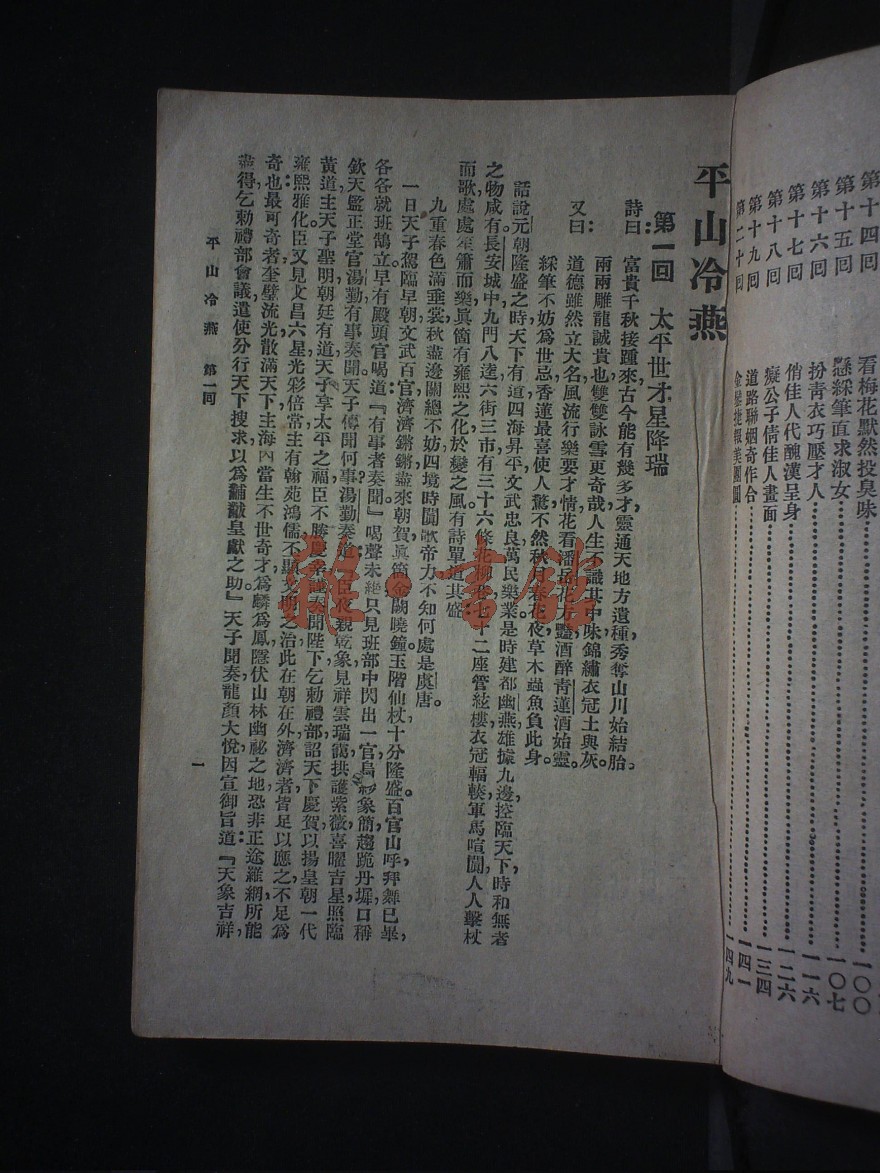 第十四回
第十五回　看梅花默然投臭味……一〇〇
第十六回　懸綵筆直求淑女……一〇七
第十七回　扮青衣巧壓才人……一一六
第十八回　俏佳人代醜漢呈身……一二六
第十九回　癡公子倩佳人畫面……一三四
第二十回　道路聯姻奇作合……一四一
金榜捷報美團圓……一四九
平山冷燕
第一回　太平世才星降瑞
詩曰：富貴千秋接踵來，古今能有幾多才，靈通天地方遺種，秀奪山川始結胎。
兩兩雕龍誠貴也，雙雙詠雪更奇哉，人生不識其中味，錦繡衣冠土與灰。
又曰：道德雖然立大名，風流行樂要才情，花看潘岳花方豔，酒醉青蓮酒始靈。
綵筆不妨為世忌，香蓮最喜使人驚，不然秋月春花夜，草木蟲魚負此身。
話說元朝隆盛之時，天下有道，四海昇平，文武忠良，萬民樂業，是時建都幽燕，雄據九邊，控臨天下，時和無者
之物咸有，長安城中九門八逵，六街三市，有三十六條花柳巷，七十二座管絃樓，衣冠輻輳，軍馬喧闐，人人擊杖
而歌，處處笙簫而樂，眞箇有雍熙之化，於變之風。有詩單道其盛：
九重春色滿垂裳，秋盡邊關總不妨，四境時聞歌帝力，不知何處是虞唐。
一日天子駕臨早朝，文武百官濟濟鏘鏘，盡來朝賀，眞箇金闕曉鐘，玉階仙杖，十分隆盛。百官山呼拜舞已畢，
各各就班鵠立，早有殿頭官喝道：『有事者奏聞』喝聲未絕，只見班部中閃出一官，烏紗象簡，趨跪丹墀，口稱
欽天監正堂官湯勤有事奏聞，天子傳問何事，湯勤奏道：『臣夜觀乾象，見祥雲瑞靄，拱護紫薇，喜曜吉星，照臨
黃道，主天子聖明，朝廷有道，天子享太平之福，臣不勝慶幸，謹奏聞陛下，乞勅禮部，詔天下慶賀，以揚皇朝一代
雍熙雅化，臣又見文昌六星，光彩倍常，主有翰苑鴻儒，丕顯文明之治，此在朝在外，濟濟者皆足以應之，不足為
奇也，最可奇者，奎璧流光，散滿天下，主海內當生不世奇才，為麟為鳳，隱伏山林幽祕之地，恐非正途羅網所能
盡得，乞勅禮部會議，遣使分行天下搜求，以為黼黻皇猷之助』天子聞奏，龍顏大悅，因宣御旨道：『天象吉祥，
平山冷燕　第一回
一